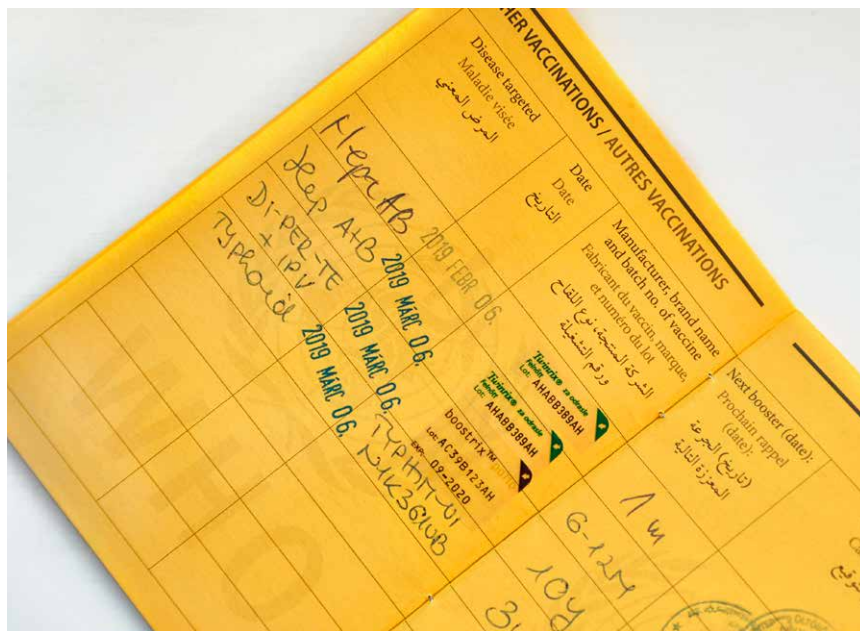 HER VACCINATIONS / AUTRES VACCINATIONS
Disease targeted
Maladie visée
المرض المعني
Date
Date
التاريخ
Manufacturer, brand name
and batch no. of vaccine
Fabricant du vaccin, marque,
et numéro du lot
الشركة المنتجة، نوع اللقاح
ورقم التشغيلة
Next booster (date):
Prochain rappel
(date):
(تاريخ) الجرعة
المعززة التالية
Hep AB
2019 FEBR 06.
Twinrix® za odrasle
Felnőtt
Lot: AHABB389AH
1 m
Hep A+B
2019 MÁRC 06.
Twinrix® za odrasle
Felnőtt
Lot: AHABB389AH
6-12M
DI-PER-TE
+ IPV
2019 MÁRC 06.
boostrix™ polio
Lot: AC39B123AH
EXP.: 09-2020
10y
Typhoid
2019 MÁRC 06.
TYPHIM-VI